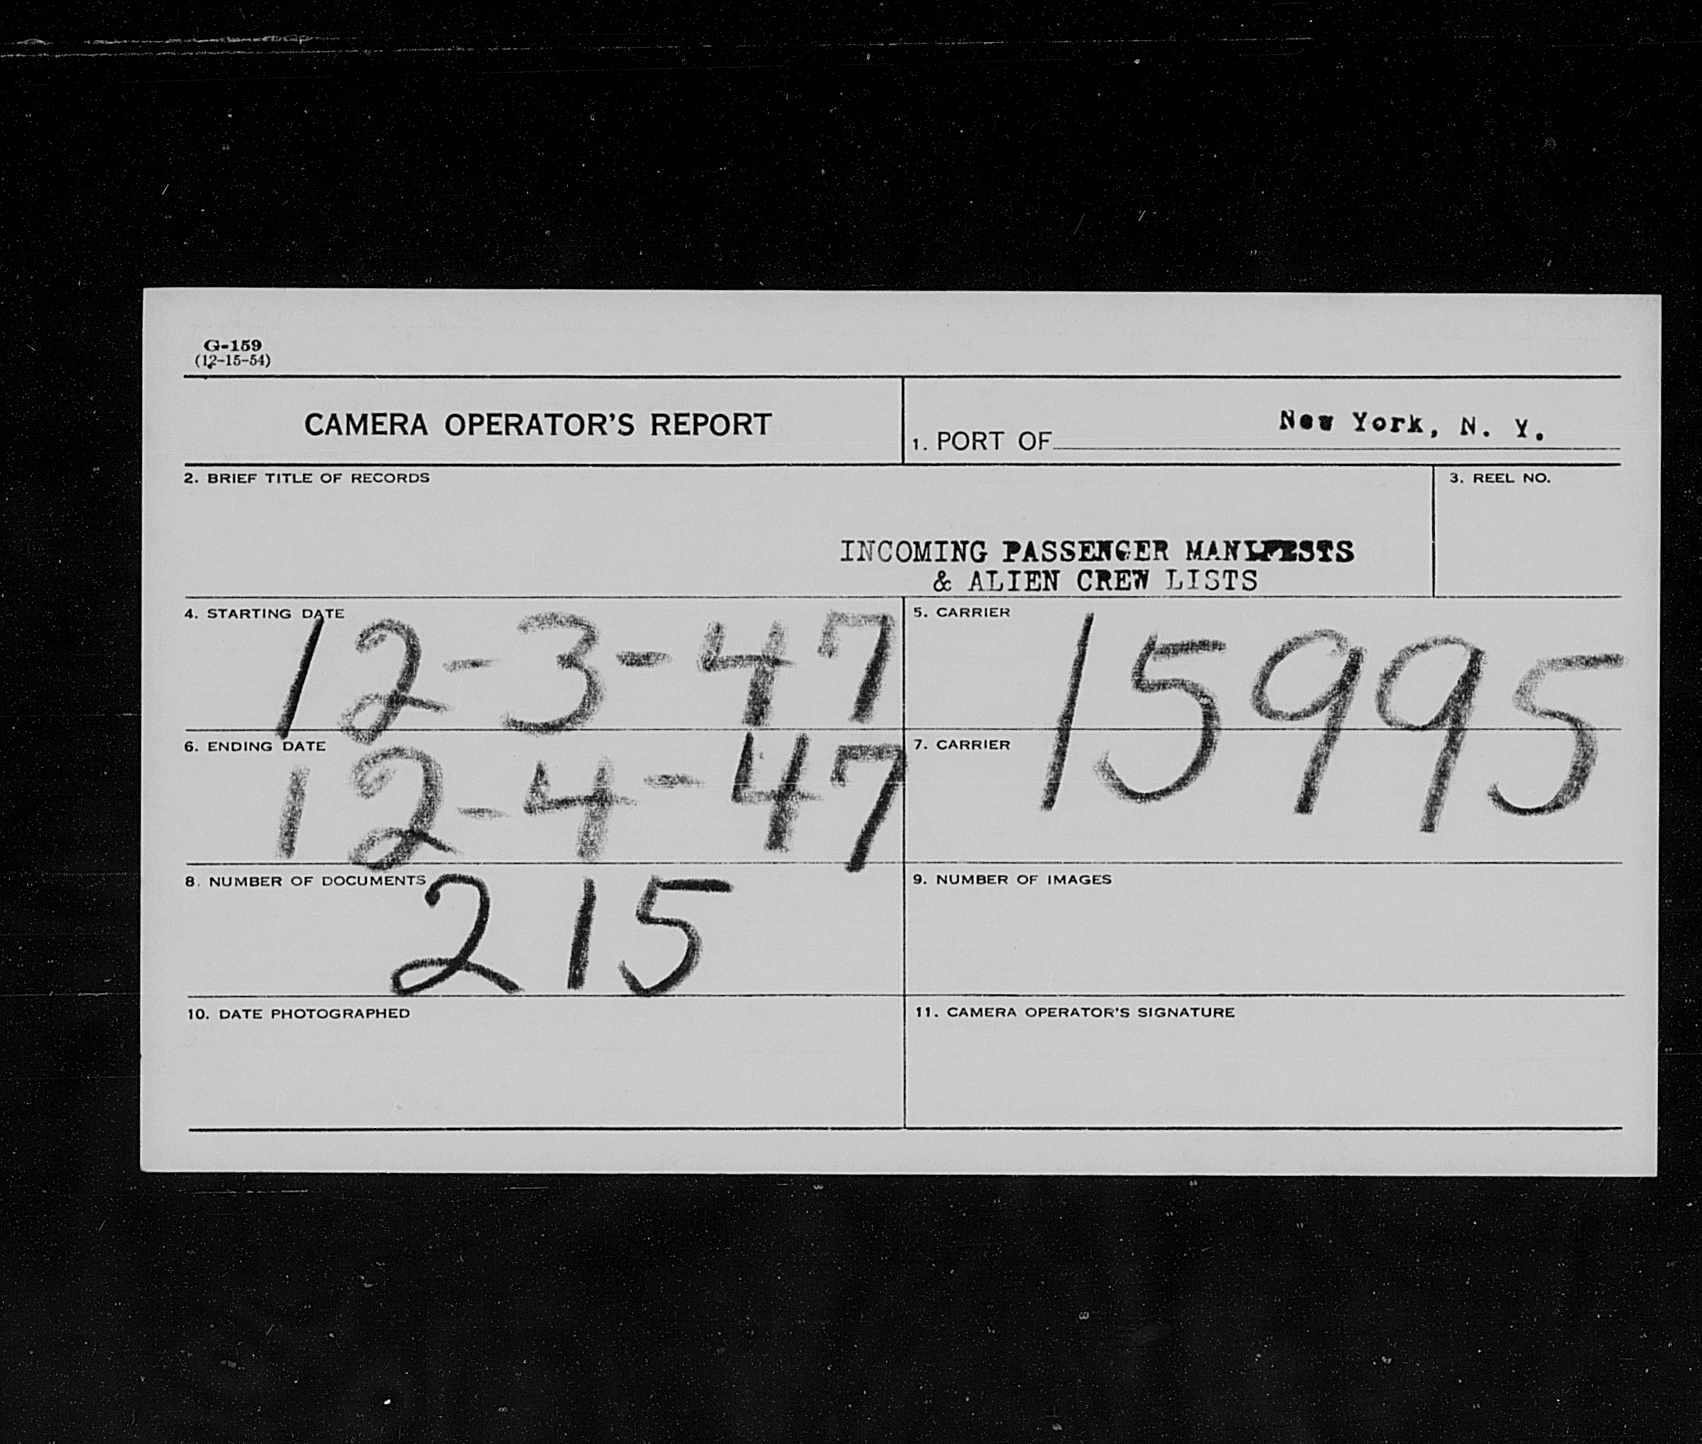 G-159
(12-15-54)
CAMERA OPERATOR'S REPORT
1. PORT OF New York, N. Y.
2. BRIEF TITLE OF RECORDS
3. REEL NO.
INCOMING PASSENGER MANIFESTS
& ALIEN CREW LISTS
4. STARTING DATE
12-3-47
5. CARRIER
15995
6. ENDING DATE
12-4-47
7. CARRIER
8. NUMBER OF DOCUMENTS
215
9. NUMBER OF IMAGES
10. DATE PHOTOGRAPHED
11. CAMERA OPERATOR'S SIGNATURE